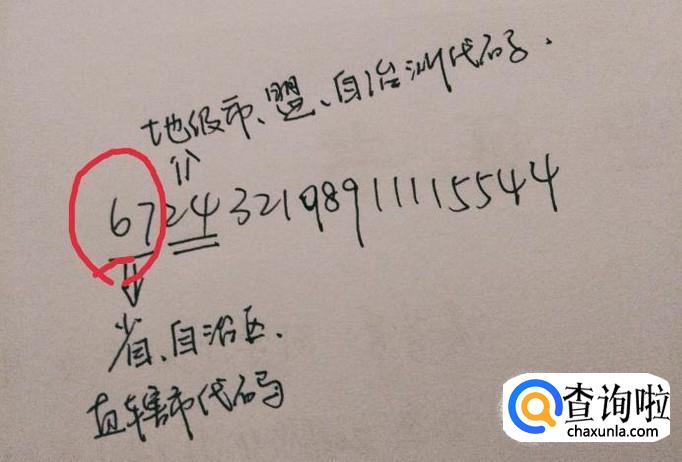 地级市、盟、自治洲代码.
672432198911115544
省、自治区、
直辖市代码
查询啦
chaxunla.com